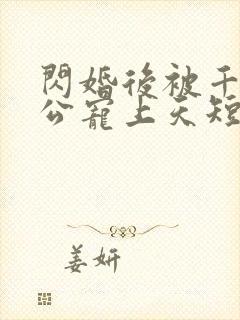 閃婚後被千
公寵上天短
姜妍